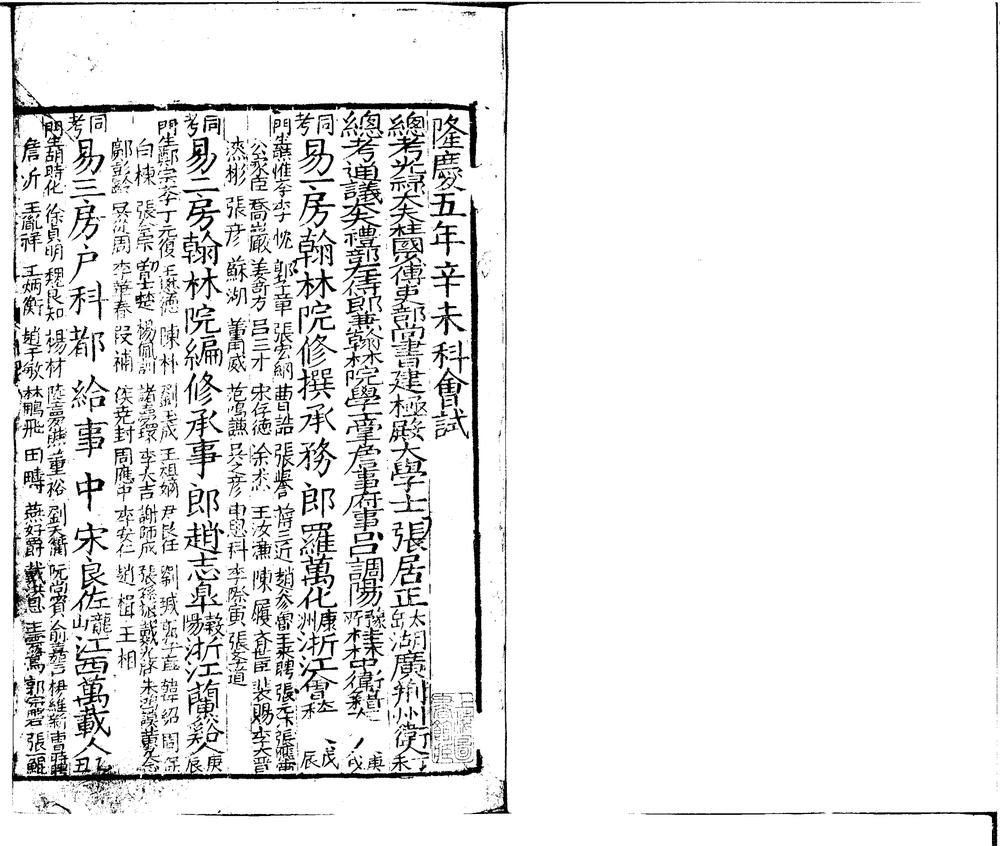 隆慶五年辛未科會試
總考光祿大夫柱國少傅吏部尚書建極殿大學士張居正太岳湖廣荊州衛人丁未
總考通議大夫禮部左侍郎兼翰林院學士掌詹事府事呂調陽豫所桂林中衛人庚戌
同考易一房翰林院修撰承務郎羅萬化康洲浙江會稽人戊辰
門生蘇惟霖李 忱 郭 章 張宏納 曹 誥 張譽 蔣三近 趙參魯 王來聘
公家臣 喬巖 姜奇方 呂三才 宋存德 余杰 王汝濂 陳履 裴賜 李大晋
張彥 蘇湖 董用威 范鳴謙 吳之彥 申思科 李際寅 張孝道
同考易二房翰林院編修承事郎趙志皋瀔陽浙江蘭谿人戊辰
門生鄭宗學 丁元復 王 陳 朴 劉玉成 王祖嫡 尹良任 劉瑊 韓紹 周保
白棟 張 鄒士楚 楊佩訓 諸壽 李大吉 謝師成 張孫繩 戴光啟 朱鴻謨 黃念
鄭彭齡 吳從周 李華春 段補 侯堯封 周應中 李安仁 趙楫 王相
同考易三房戶科都給事中宋良佐龍山江西萬載人
門生胡時化 徐貞明 魏良知 楊材 陸嘉 董裕 劉天衢 阮尚賓 俞嘉言 伊維新 曹
詹沂 王胤祥 王炳衡 趙于敏 林鵬飛 田疇 燕好爵 戴洪恩 郭宗磐 張一鯤